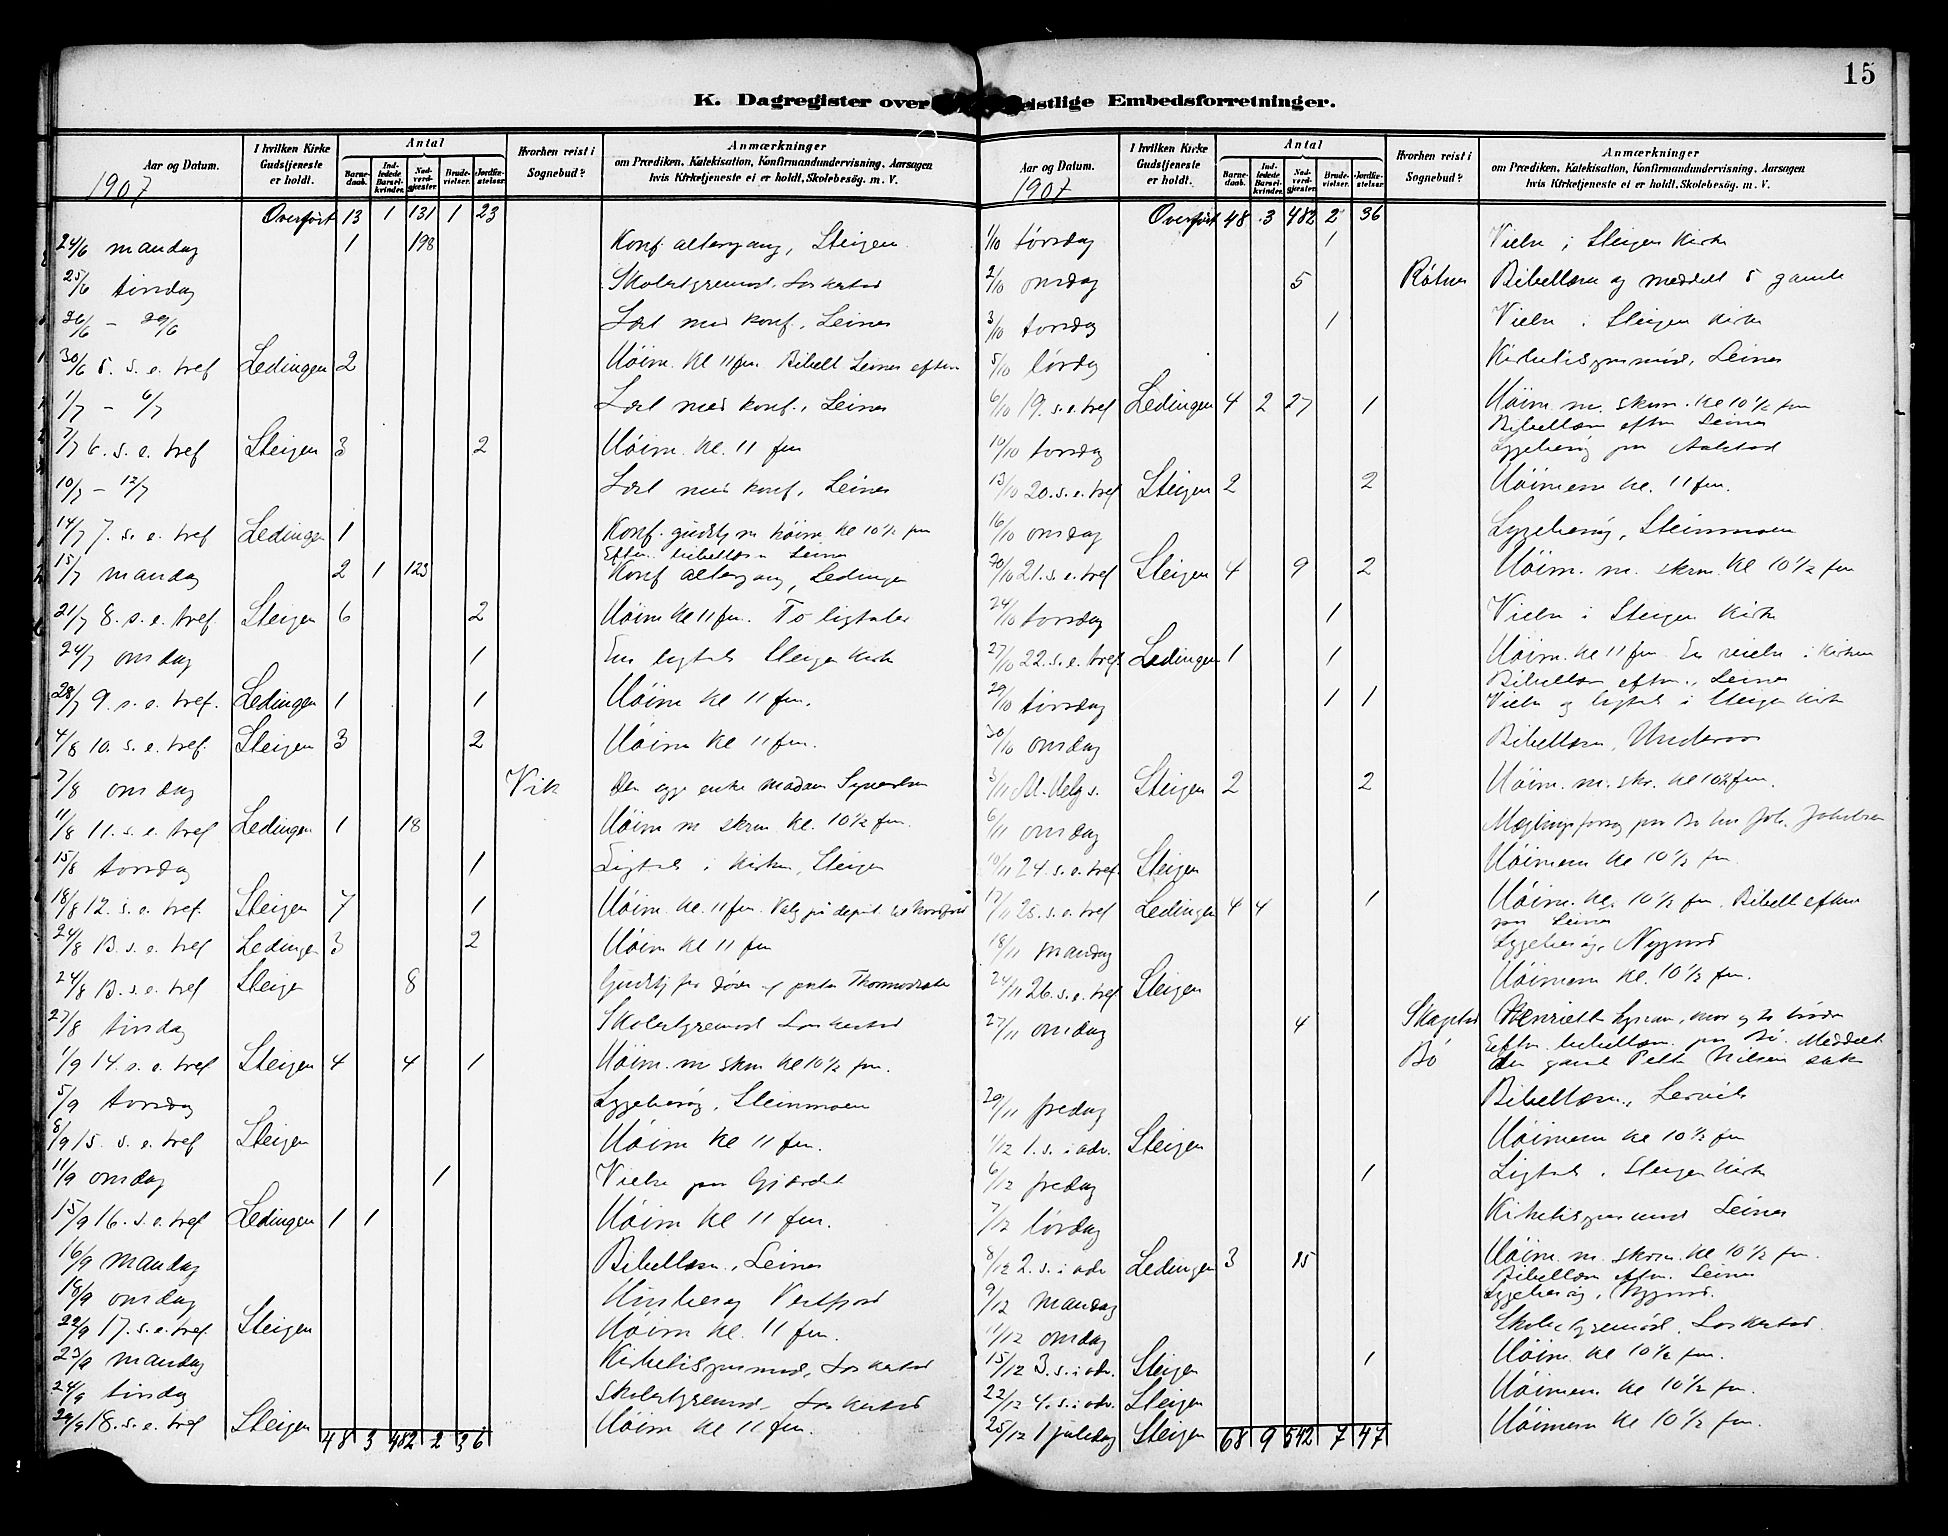 15
K. Dagregister over geistlige Embedsforretninger.
Aar og Datum.
1907
I hvilken Kirke Gudstjeneste er holdt.
Antal
Barnedaab.
Indledede Barselkvinder.
Nadverdgjæster.
Brudevielser.
Jordfæstelser.
Hvorhen reist i Sognebud?
Anmærkninger
om Prædiken, Katekisation, Konfirmandundervisning, Aarsagen
hvis Kirketjeneste ei er holdt, Skolebesøg. m. V.
Overført 13 1 131 1 23
24/6 mandag 1 198 Konf. altergang, Steigen
25/6 tirsdag Skolestyremøde, Laskestad
26/6 - 29/6 Læst med konf., Leines
30/6 5. s. e. tref Ledingen 2 Høim. kl 11 fm. Bibell Leines efterm
1/7 - 6/7 Læst med konf., Leines
7/7 6. s. e. tref Steigen 3 2 Høim. kl. 11 fm
10/7 - 12/7 Læst med konf., Leines
14/7 7. s. e. tref Ledingen 1 Konf. gudstj m høim kl 10 1/2 fm
Efterm. bibellæsn Leines
15/7 mandag 2 1 123 Konf altergang, Ledingen
21/7 8. s. e. tref Steigen 6 2 Høim kl 11 fm. To ligtaler
24/7 onsdag 1 En ligtale Steigen kirke
28/7 9. s. e. tref. Ledingen 1 1 Høim kl 11 fm.
4/8 10. s. e. tref. Steigen 3 2 Høim kl 11 fm.
7/8 onsdag Vik Den syge enke madam
11/8 11. s. e. tref Ledingen 1 18 Høim m skrm kl. 10 1/2 fm.
15/8 torsdag 1 Ligtale i kirken, Steigen
18/8 12. s. e. tref. Steigen 7 1 Høim. kl. 11 fm. Valg på deput.
24/8 13. s. e. tref Ledingen 3 2 Høim kl 11 fm
24/8 13. s. e. tref Steigen 8 Gudstj for døve
27/8 tirsdag Skolestyremøde Laskestad
1/9 14. s. e. tref Steigen 4 4 1 Høim. m skrm kl 10 1/2 fm.
5/9 torsdag Sygebesøg, Steinmoen
8/9 15. s. e. tref Steigen Høim kl 11 fm.
11/9 onsdag 1 Vielse paa Gjærdet
15/9 16. s. e. tref Ledingen 1 1 Høim kl 11 fm.
16/9 mandag Bibellæsn., Leines
18/9 onsdag Husbesøg
22/9 17. s. e. tref. Steigen Høim kl. 11 fm.
23/9 mandag Kirketilsynsmøde, Laskestad
24/9 tirsdag Skolestyremøde Laskestad
29/9 18. s. e. tref Steigen Høim kl 11 fm.
48 3 482 2 36
Aar og Datum.
1907
I hvilken Kirke Gudstjeneste er holdt.
Antal
Barnedaab.
Indledede Barselkvinder.
Nadverdgjæster.
Brudevielser.
Jordfæstelser.
Hvorhen reist i Sognebud?
Anmærkninger
om Prædiken, Katekisation, Konfirmandundervisning, Aarsagen
hvis Kirketjeneste ei er holdt, Skolebesøg. m. V.
Overført 48 3 482 2 36
1/10 tirsdag 1 Vielse i Steigen kirke
2/10 onsdag 5 Røtnes Bibellæsn og meddelt 5 gamle
3/10 torsdag 1 Vielse i Steigen kirke
5/10 lørdag Kirketilsynsmøde, Leines
6/10 19. s. e. tref Ledingen 4 2 27 1 Høim. m. skrm. kl 10 1/2 fm
Bibellæsn efterm Leines
10/10 torsdag Sygebesøg paa
13/10 20. s. e. tref Steigen 2 2 Høimesse kl. 11 fm.
16/10 onsdag Sygebesøg, Steinmoen
20/10 21. s. e. tref Steigen 4 9 2 Høim. m. skrm. kl 10 1/2 fm
24/10 torsdag 1 Vielse i Steigen kirke
27/10 22. s. e. tref Ledingen 1 1 Høim. kl 11 fm. En vielse i kirken
Bibellæsn efterm., Leines
29/10 tirsdag 1 1 Vielse og ligtale i Steigen kirke
30/10 onsdag Bibellæsn,
3/11 Al. helg s. Steigen 2 2 Høim. m. skr. kl 10 1/2 fm.
6/11 onsdag Mæglingsforsøg paa Bø
10/11 24. s. e. tref Steigen Høimesse kl 10 1/2 fm.
17/11 25. s. e. tref Ledingen 4 4 1 Høim. kl. 10 1/2 fm. Bibell efterm
paa Leines
18/11 mandag Sygebesøg, Nygaard
24/11 26. s. e. tref Steigen Høimesse kl. 10 1/2 fm.
27/11 onsdag 4 Skagstad Henriette
Bø Efterm. bibellæsn. paa Bø. Meddelt
den gamle
29/11 fredag Bibellæsn., Lervik
1/12 1. s. i adv. Steigen Høimesse kl 10 1/2 fm
6/12 fredag 1 Ligtale. Steigen kirke
7/12 lørdag Kirketilsynsmøde Leines
8/12 2. s. i adv Ledingen 3 15 Høim. m. skrm. kl 10 1/2 fm.
Bibellæsn efterm. Leines
9/12 mandag Sygebesøg, Nygaard.
11/12 onsdag Skolestyremøde, Laskestad.
15/12 3. s. i adv. Steigen 1 Høim. kl 10 1/2 fm.
22/12 4. s. i adv. Steigen Høimesse kl 10 1/2 fm.
25/12 1 juledag Steigen Høimesse kl 10 1/2 fm.
68 9 542 7 47